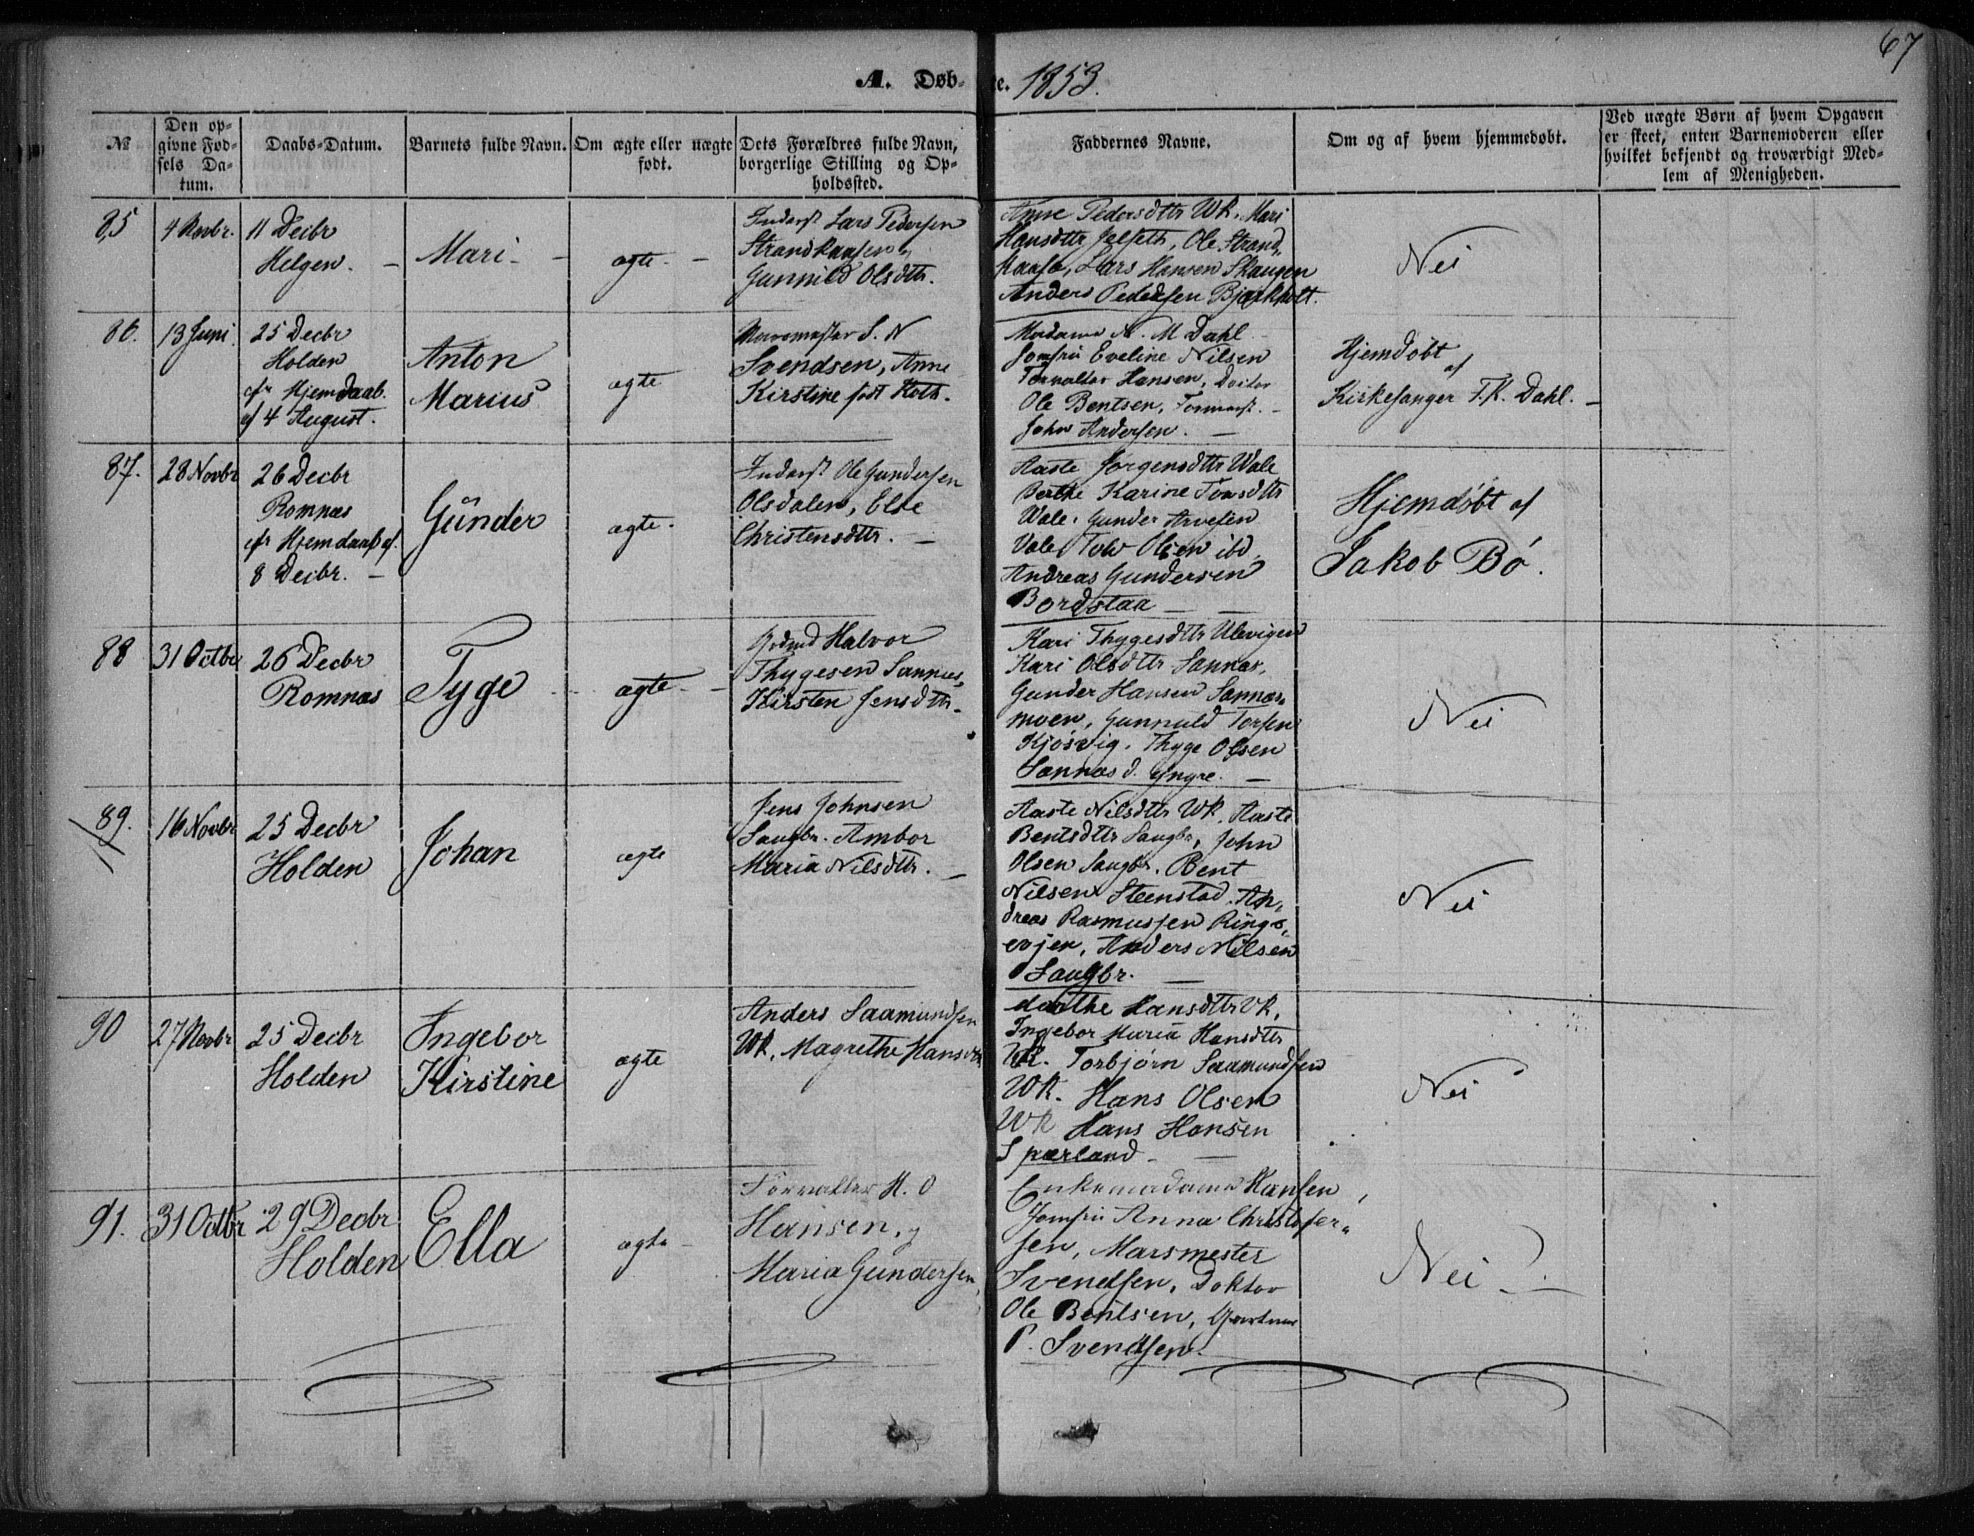 67
A. Døb- te. 1853.
№
Den op-
givne Fød-
sels Da-
tum.
Daabs-Datum.
Barnets fulde Navn.
Om ægte eller uægte
født.
Dets Forældres fulde Navn,
borgerlige Stilling og Op-
holdssted.
Faddernes Navne.
Om og af hvem hjemmedøbt.
Ved uægte Børn af hvem Opgaven
er skeet, enten Barnemoderen eller
hvilket bekjendt og troværdigt Med-
lem af Menigheden.
85
4 Novbr.
11 Decbr
Helgen. -
Mari -
ægte. -
Inderst Lars Pedersen
Strandkaasen,
Gunnild Olsdttr.
Anne Pedersdttr Wk. Mari
Hansdttr Jelseth, Ole Strand-
kaase, Lars Hansen Skaugen
Anders Pedersen Bjørkholt.
Nei
86.
13 Juni
25 Decbr
Holden
cfr Hjemdaab
af 4 August.
Anton
Marius
ægte
S. N
Svendsen, Anne
Kirstine født Hoth.
Madame N. M Dahl
Jomfru Eveline Nilsen
Forvalter Hansen, Doctor
Ole Bentsen,
John Andersen. -
Hjemdøbt
af
Kirkesanger F. K. Dahl. -
87.
28 Novbr
26 Decbr
Romnæs
cfr Hjemdaab af
8 Decbr. -
Gunder
ægte.
Inderst Ole Gundersen
Olsdalen, Else
Christensdttr. -
Aaste Jørgensdttr Wale
Berthe Karine Tovsdttr
Wale. Gunder Arvesen
Vale Tov Olsen ibd.
Andreas Gundersen
Bordstaa -
Hjemdøbt af
Jakob Bø.
88
31 Octbr
26 Decbr
Romnæs
Tyge
ægte -
Halvor
Thygesen Sannæs,
Kirsten Jensdttr.
Kari Thygesdttr Ulevigen
Kari Olsdttr Sannæs,
Gunder Hansen Sannæs-
moen, Gunnuld Torsen
Kjøsvig. Thyge Olsen
Sannæs d. yngre. -
Nei
89.
16 Novbr
25 Decbr
Holden
Johan
ægte
Jens Johnsen
Saugbr. Ambor
Maria Nilsdttr. -
Aaste Nilsdttr Wk. Aaste
Bentsdttr Saugbr, John
Olsen Saugbr. Bent
Nilsen Steenstad. An-
dreas Rasmussen Rings-
evjen, Anders Nilsen
Saugbr. -
Nei
90
27 Novbr
25 Decbr
Holden
Ingebor
Kirstine
ægte
Anders Saamundsen
Wk. Magrethe Hansdttr
Hansdttr Vk.
Ingebor Maria Hansdttr
Vk. Torbjørn Saamundsen
Wk. Hans Olsen
Wk Hans Hansen
Spærland -
Nei
91.
31 Octbr
29 Decbr
Holden
Ella
ægte -
Forvalter H. O
Hansen, g
Maria Gundersen,
Enkemadame Hansen,
Jomfru Anna Christofer-
sen, Marsmester
Svendsen, Doktor
Ole Bentsen, Gartner
P. Svendsen.
Nei. -